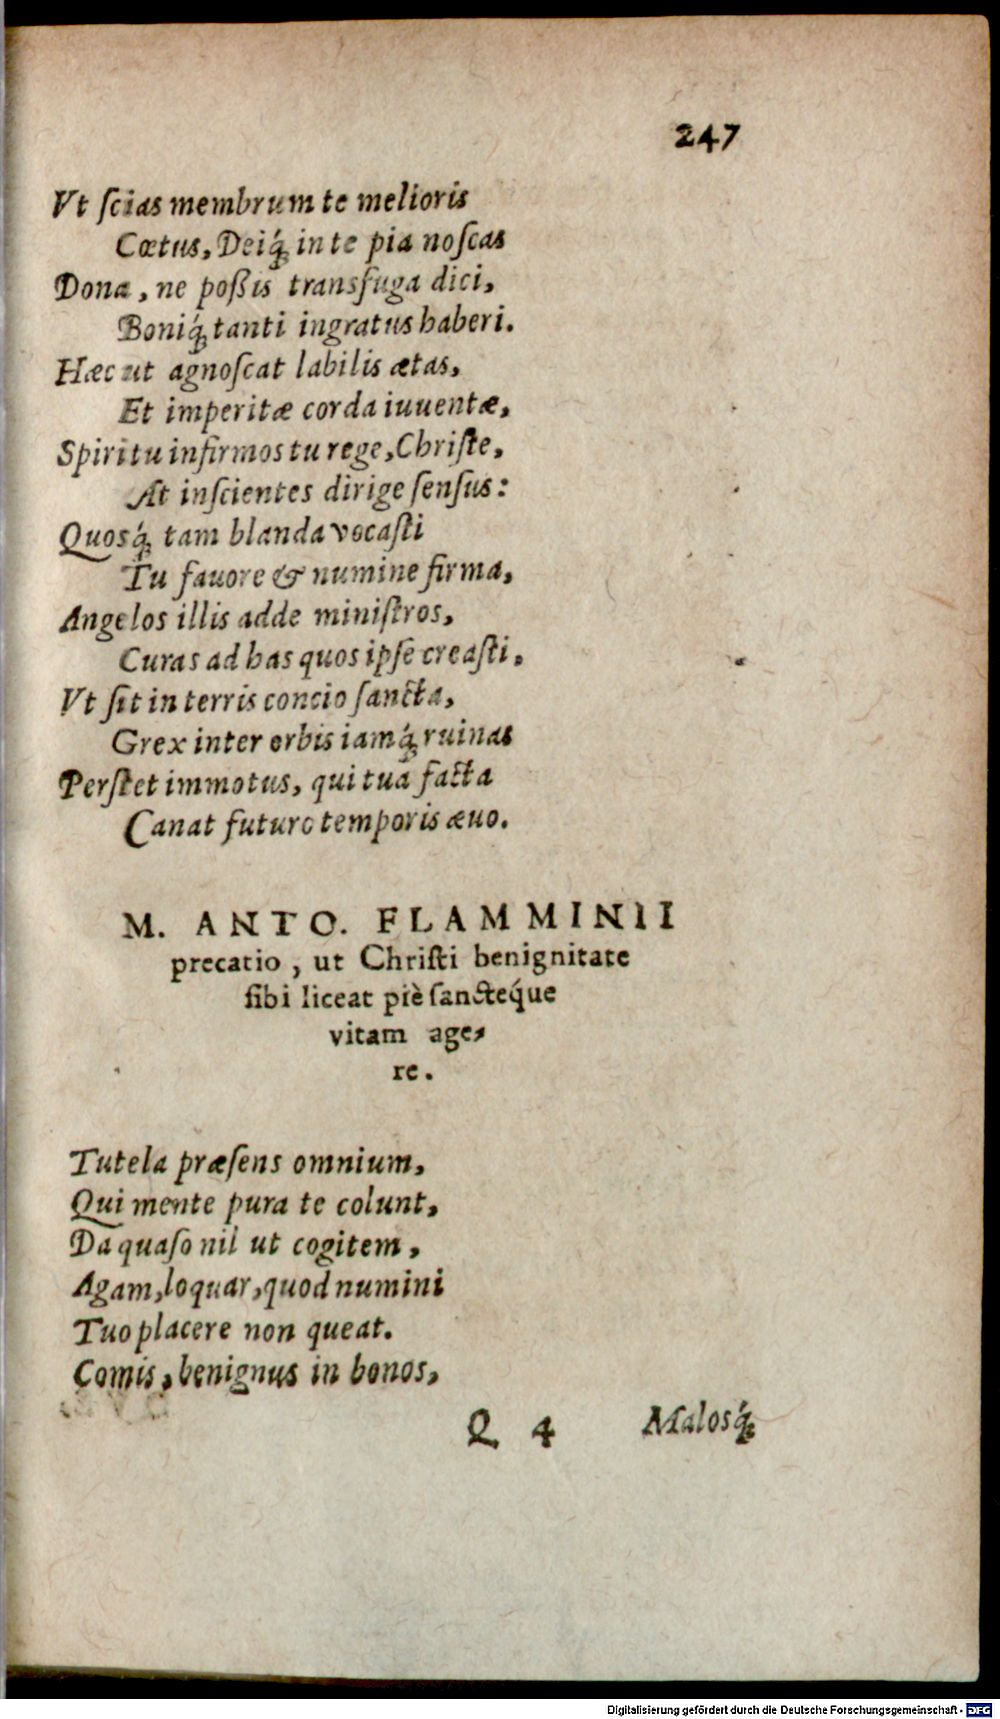 247
Vt ſcias membrum te melioris
Cœtus, Deiq́ꝫ in te pia noſcas
Dona, ne poßis transfuga dici,
Boniq́ꝫ tanti ingratus haberi.
Hæc ut agnoſcat labilis ætas,
Et imperitæ corda iuuentæ,
Spiritu infirmos tu rege, Chriſte,
At inſcientes dirige ſenſus:
Quosq́ꝫ tam blanda vocaſti
Tu fauore & numine firma,
Angelos illis adde miniſtros,
Curas ad has quos ipſe creaſti,
Vt ſit in terris concio ſancta,
Grex inter orbis iamq́ꝫ ruinas
Perſtet immotus, qui tua facta
Canat futuro temporis æuo.
M. ANTO. FLAMMINII
precatio, ut Chriſti benignitate
ſibi liceat piè ſancteq́ue
vitam age,
re.
Tutela præſens omnium,
Qui mente pura te colunt,
Da quaſo nil ut cogitem,
Agam, loquar, quod numini
Tuo placere non queat.
Comis, benignus in bonos,
Q 4 Malosq́ꝫ
Digitalisierung gefördert durch die Deutsche Forschungsgemeinschaft - DFG